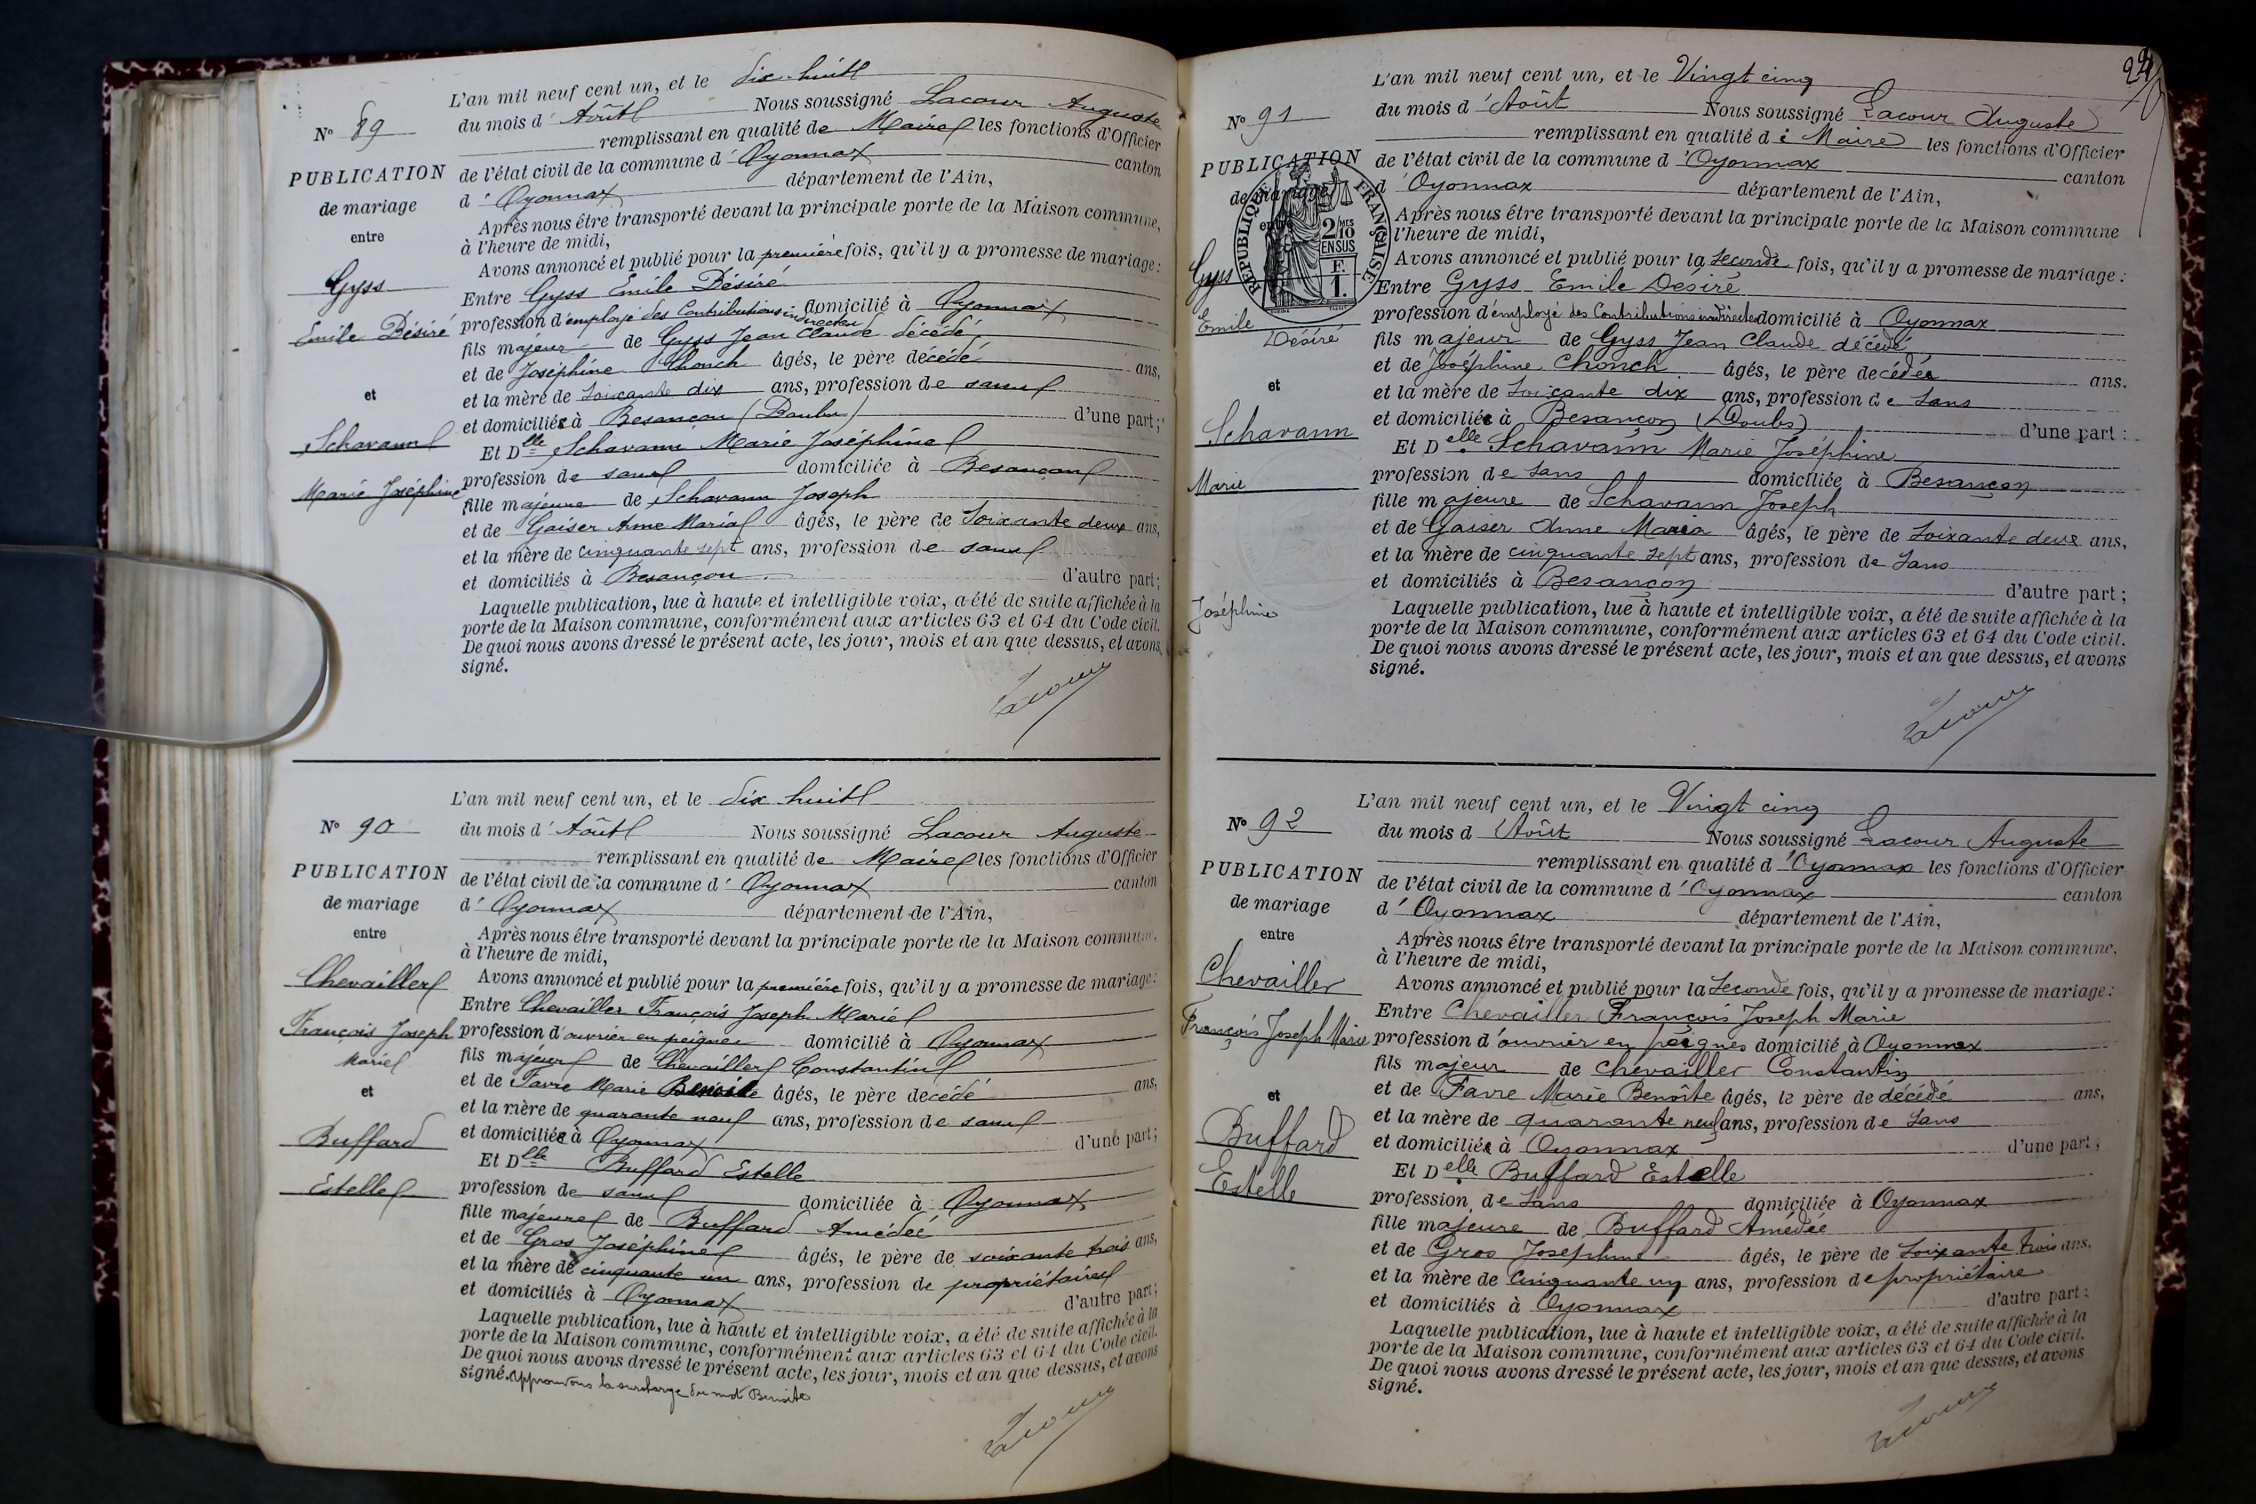 L'an mil neuf cent un, et le dix-huit
N° 89
du mois d'Août Nous soussigné Lacour Auguste
remplissant en qualité de Maire les fonctions d'Officier
PUBLICATION
de mariage
entre
Gyss
Emile Désiré
et
Schavann
Marie Joséphine
de l'état civil de la commune d'Oyonnax canton
d'Oyonnax département de l'Ain,
Après nous être transporté devant la principale porte de la Maison commune,
à l'heure de midi,
Avons annoncé et publié pour la première fois, qu'il y a promesse de mariage:
Entre Gyss Emile Désiré
profession d'employé des Contributions indirectes domicilié à Oyonnax
fils majeur de Gyss Jean Claude décédé
et de Joséphine Chonch âgés, le père décédé ans,
et la mère de soixante dix ans, profession de sans
et domiciliée à Besançon (Doubs) d'une part;
Et Delle Schavann Marie Joséphine
profession de sans domiciliée à Besançon
fille majeure de Schavann Joseph
et de Gaiser Anne Maria âgés, le père de soixante deux ans,
et la mère de cinquante sept ans, profession de sans
et domiciliés à Besançon d'autre part;
Laquelle publication, lue à haute et intelligible voix, a été de suite affichée à la
porte de la Maison commune, conformément aux articles 63 et 64 du Code civil.
De quoi nous avons dressé le présent acte, les jour, mois et an que dessus, et avons
signé.
Lacour
L'an mil neuf cent un, et le dix huit
N° 90
du mois d'Août Nous soussigné Lacour Auguste
remplissant en qualité de Maire les fonctions d'Officier
PUBLICATION
de mariage
entre
Chevailler
François Joseph
Marie
et
Buffard
Estelle
de l'état civil de la commune d'Oyonnax canton
d'Oyonnax département de l'Ain,
Après nous être transporté devant la principale porte de la Maison commune,
à l'heure de midi,
Avons annoncé et publié pour la première fois, qu'il y a promesse de mariage:
Entre Chevailler François Joseph Marie
profession d'ouvrier en peignes domicilié à Oyonnax
fils majeur de Chevailler Constantin
et de Favre Marie Benoite âgés, le père décédé ans,
et la mère de quarante neuf ans, profession de sans
et domiciliée à Oyonnax d'une part;
Et Delle Buffard Estelle
profession de sans domiciliée à Oyonnax
fille majeure de Buffard Amédée
et de Gros Joséphine âgés, le père de soixante trois ans,
et la mère de cinquante un ans, profession de propriétaires
et domiciliés à Oyonnax d'autre part;
Laquelle publication, lue à haute et intelligible voix, a été de suite affichée à la
porte de la Maison commune, conformément aux articles 63 et 64 du Code civil.
De quoi nous avons dressé le présent acte, les jour, mois et an que dessus, et avons
signé. Approuvons la surcharge du mot Benoite
Lacour
L'an mil neuf cent un, et le Vingt cinq
N° 91
du mois d'Août Nous soussigné Lacour Auguste
remplissant en qualité de Maire les fonctions d'Officier
PUBLICATION
de mariage
entre
RÉPUBLIQUE FRANÇAISE
2/10 MES
EN SUS
F.
1.
Gyss
Emile
Désiré
et
Schavann
Marie
Joséphine
de l'état civil de la commune d'Oyonnax canton
d'Oyonnax département de l'Ain,
Après nous être transporté devant la principale porte de la Maison commune
l'heure de midi,
Avons annoncé et publié pour la seconde fois, qu'il y a promesse de mariage:
Entre Gyss Emile Désiré
profession d'employé des Contributions indirectes domicilié à Oyonnax
fils majeur de Gyss Jean Claude décédé
et de Joséphine Chonch âgés, le père décédé ans.
et la mère de Soixante dix ans, profession de Sans
et domiciliée à Besançon (Doubs) d'une part:
Et Delle Schavann Marie Joséphine
profession de Sans domiciliée à Besançon
fille majeure de Schavann Joseph
et de Gaiser Anne Maria âgés, le père de Soixante deux ans,
et la mère de cinquante sept ans, profession de Sans
et domiciliés à Besançon d'autre part;
Laquelle publication, lue à haute et intelligible voix, a été de suite affichée à la
porte de la Maison commune, conformément aux articles 63 et 64 du Code civil.
De quoi nous avons dressé le présent acte, les jour, mois et an que dessus, et avons
signé.
Lacour
L'an mil neuf cent un, et le Vingt cinq
N° 92
du mois d'Août Nous soussigné Lacour Auguste
remplissant en qualité d'Oyonnax les fonctions d'Officier
PUBLICATION
de mariage
entre
Chevailler
François Joseph Marie
et
Buffard
Estelle
de l'état civil de la commune d'Oyonnax canton
d'Oyonnax département de l'Ain,
Après nous être transporté devant la principale porte de la Maison commune,
à l'heure de midi,
Avons annoncé et publié pour la Seconde fois, qu'il y a promesse de mariage:
Entre Chevailler François Joseph Marie
profession d'ouvrier en peignes domicilié à Oyonnax
fils majeur de Chevailler Constantin
et de Favre Marie Benoîte âgés, le père de décédé ans,
et la mère de quarante neuf ans, profession de Sans
et domiciliée à Oyonnax d'une part;
Et Delle Buffard Estelle
profession de Sans domiciliée à Oyonnax
fille majeure de Buffard Amédée
et de Gros Josephine âgés, le père de Soixante trois ans,
et la mère de Cinquante un ans, profession de propriétaire
et domiciliés à Oyonnax d'autre part;
Laquelle publication, lue à haute et intelligible voix, a été de suite affichée à la
porte de la Maison commune, conformément aux articles 63 et 64 du Code civil.
De quoi nous avons dressé le présent acte, les jour, mois et an que dessus, et avons
signé.
Lacour